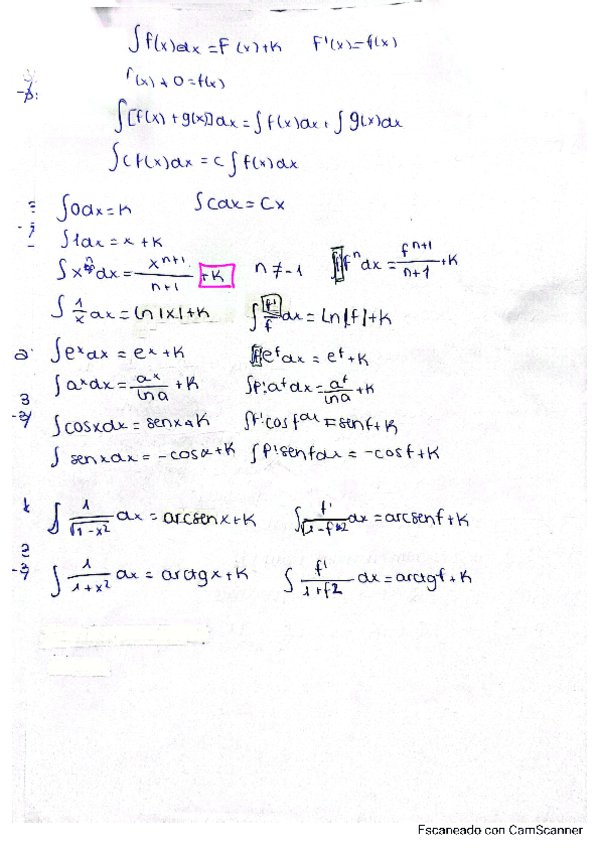 ∫f(x)dx = F(x)+K F'(x)=f(x)
'(x)+0=f(x)
∫[f(x)+g(x)]dx = ∫f(x)dx + ∫g(x)dx
∫Cf(x)dx = C∫f(x)dx
∫0dx = K ∫Cdx = Cx
∫1dx = x + K
∫xⁿdx = xⁿ⁺¹/n+1 +K n ≠ -1 ∫f'fⁿdx = fⁿ⁺¹/n+1 +K
∫1/x dx = ln|x|+K ∫f'/f dx = Ln|f|+K
∫eˣdx = eˣ+K ∫f'eᶠdx = eᶠ+K
∫aˣdx = aˣ/lna +K ∫f'aᶠdx = aᶠ/lna +K
∫cosxdx = senx+K ∫f'cosfdx = senf+K
∫senxdx = -cosx+K ∫f'senfdx = -cosf+K
∫1/√1-x² dx = arcsenx+K ∫f'/√1-f² dx = arcsenf+K
∫1/1+x² dx = arctgx+K ∫f'/1+f2 dx = arctgf+K
Escaneado con CamScanner